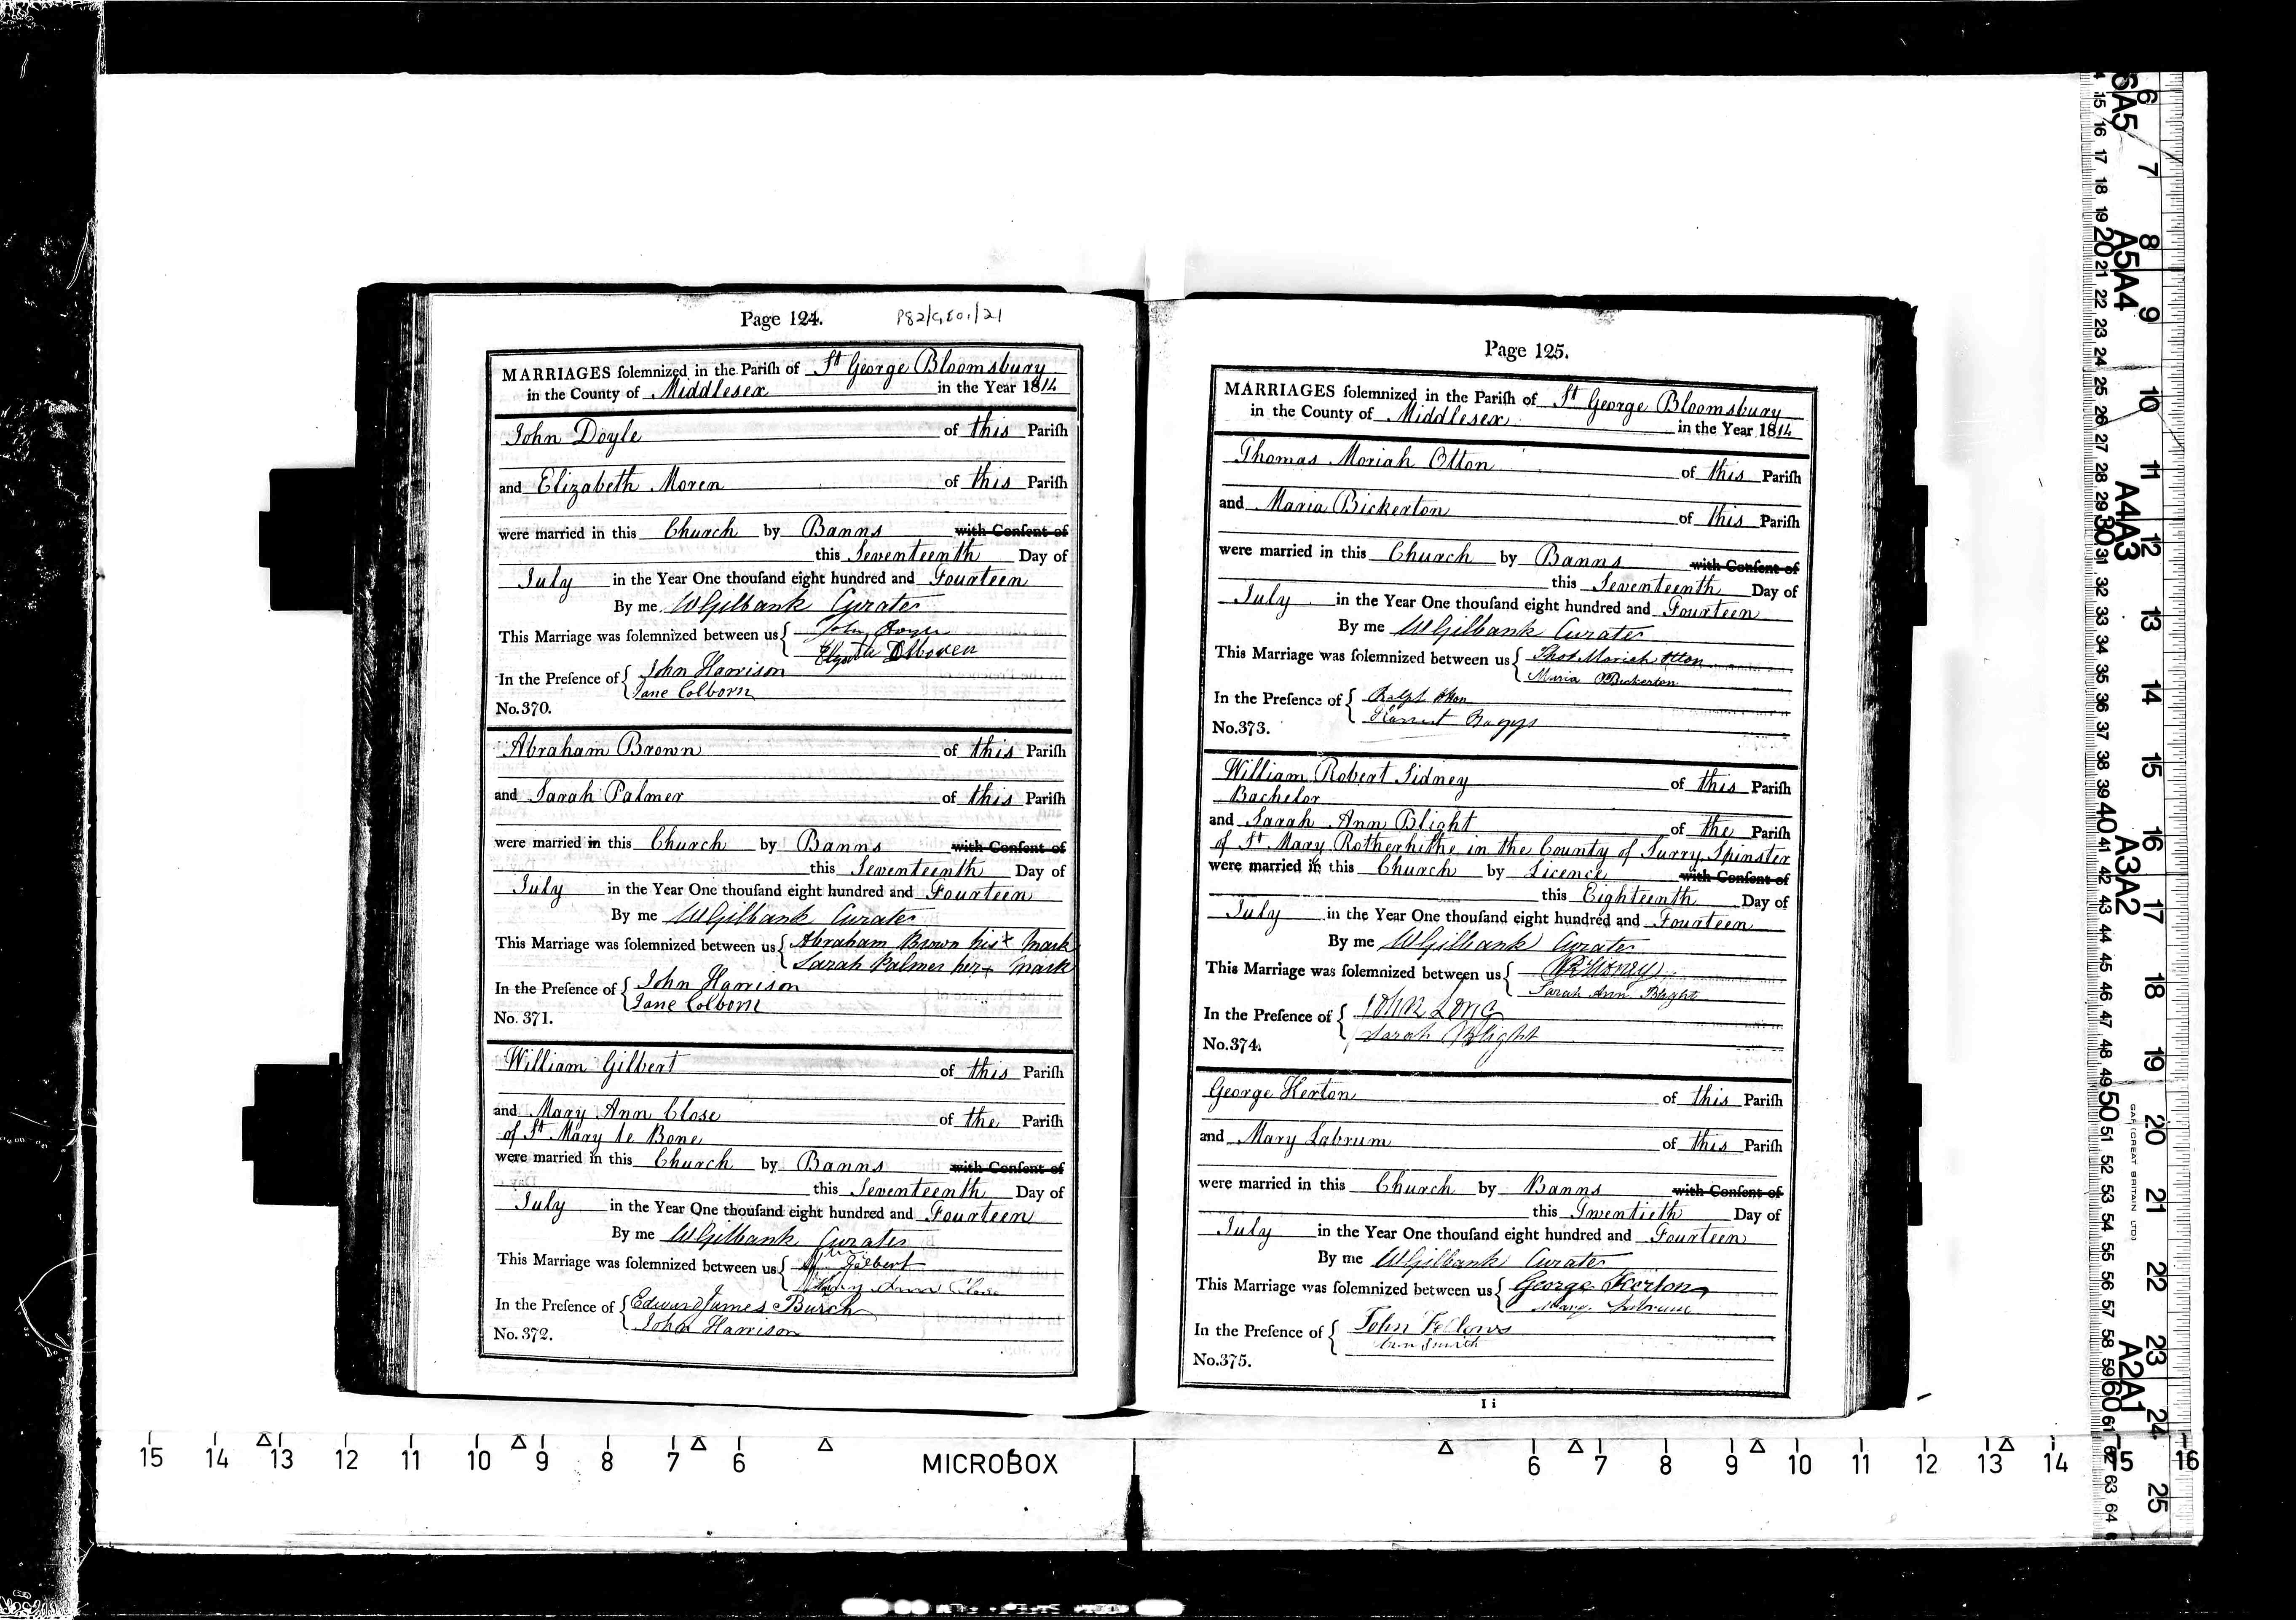 Page 124.
P82/GEO1/21
MARRIAGES ſolemnized in the Pariſh of St George Bloomsbury
in the County of Middlesex in the Year 1814
John Doyle of this Pariſh
and Elizabeth Moren of this Pariſh
were married in this Church by Banns with Conſent of
this Seventeenth Day of
July in the Year One thouſand eight hundred and Fourteen
By me WGilbank Curate
This Marriage was ſolemnized between us { John Doyle

In the Preſence of { John Harrison
Jane Colborn
No. 370.
Abraham Brown of this Pariſh
and Sarah Palmer of this Pariſh
were married in this Church by Banns with Conſent of
this Seventeenth Day of
July in the Year One thouſand eight hundred and Fourteen
By me WGilbank Curate
This Marriage was ſolemnized between us { Abraham Brown his + Mark
Sarah Palmer her + Mark
In the Preſence of { John Harrison
Jane Colborn
No. 371.
William Gilbert of this Pariſh
and Mary Ann Close of the Pariſh
of St Mary le Bone
were married in this Church by Banns with Conſent of
this Seventeenth Day of
July in the Year One thouſand eight hundred and Fourteen
By me WGilbank Curate
This Marriage was ſolemnized between us { Gilbert
Mary Ann Close
In the Preſence of { Edward James Burch
John Harrison
No. 372.
Page 125.
MARRIAGES ſolemnized in the Pariſh of St George Bloomsbury
in the County of Middlesex in the Year 1814
Thomas Moriah Otton of this Pariſh
and Maria Bickerton of this Pariſh
were married in this Church by Banns with Conſent of
this Seventeenth Day of
July in the Year One thouſand eight hundred and Fourteen
By me WGilbank Curate
This Marriage was ſolemnized between us { Thos Moriah Otton
Maria Bickerton
In the Preſence of { Ralph Otton
Harriet Baggs
No. 373.
William Robert Sidney of this Pariſh
Bachelor
and Sarah Ann Blight of the Pariſh
of St Mary Rotherhithe in the County of Surry, Spinster
were married in this Church by Licence with Conſent of
this Eighteenth Day of
July in the Year One thouſand eight hundred and Fourteen
By me WGilbank Curate
This Marriage was ſolemnized between us { WRSidney
Sarah Ann Blight
In the Preſence of { John Long
Sarah Blight
No. 374.
George Kerton of this Pariſh
and Mary Labrum of this Pariſh
were married in this Church by Banns with Conſent of
this Twentieth Day of
July in the Year One thouſand eight hundred and Fourteen
By me WGilbank Curate
This Marriage was ſolemnized between us { George Kerton
Mary Labrum
In the Preſence of { John Fellows
Ann Smith
No. 375.
I i
15 14 13 12 11 10 9 8 7 6 MICROBOX 6 7 8 9 10 11 12 13 14 15 16
6 7 8 9 10 11 12 13 14 15 16 17 18 19 20 21 22 23 24 25
6A5 A5A4 A4A3 A3A2 A2A1
15 16 17 18 19 20 21 22 23 24 25 26 27 28 29 30 31 32 33 34 35 36 37 38 39 40 41 42 43 44 45 46 47 48 49 50 51 52 53 54 55 56 57 58 59 60 61 62 63 64
GAF (GREAT BRITAIN LTD)